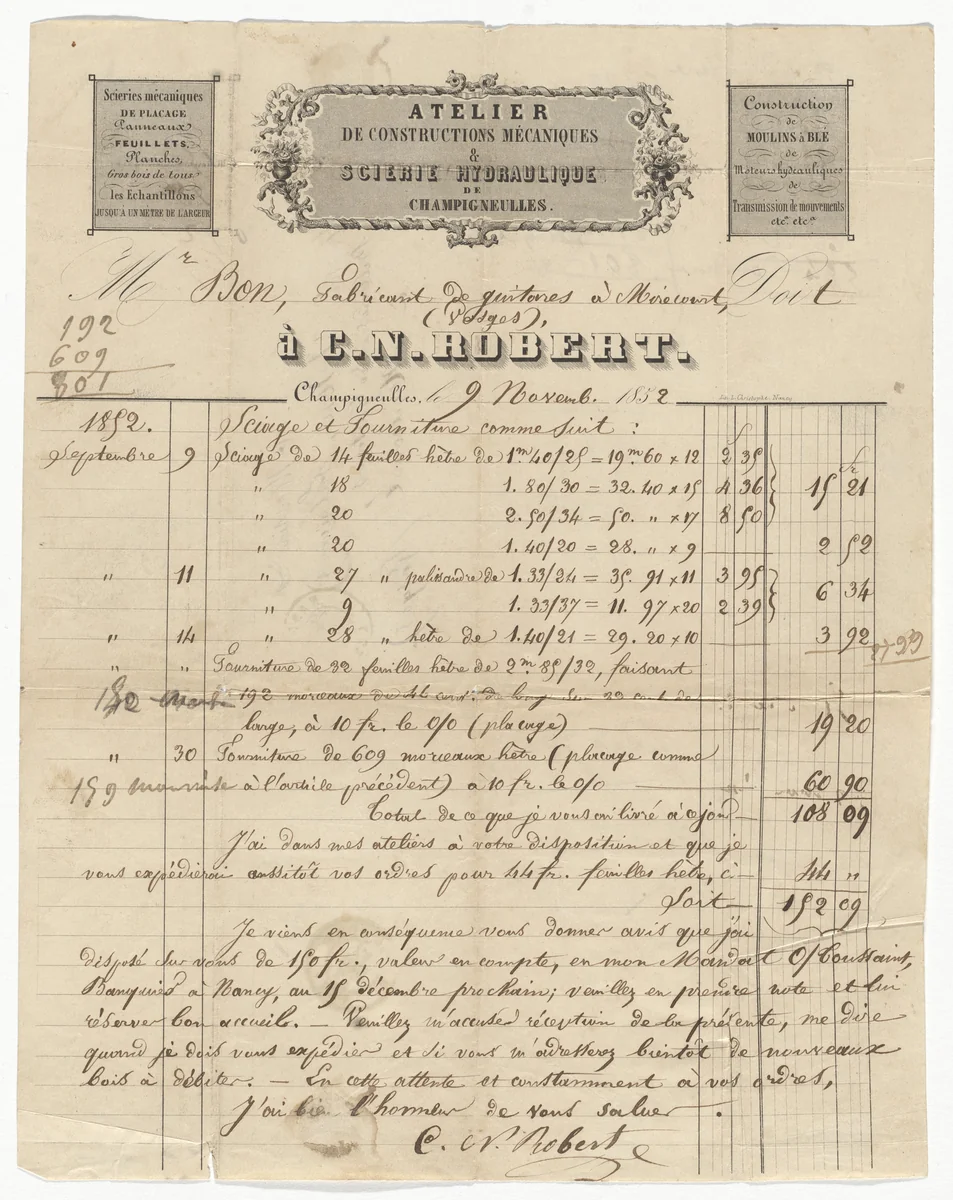 Scieries mécaniques
DE PLACAGE
Panneaux
FEUILLETS,
Planches,
Gros bois de tous
les Echantillons
JUSQU'À UN MÈTRE DE LARGEUR
ATELIER
DE CONSTRUCTIONS MÉCANIQUES
&
SCIERIE HYDRAULIQUE
DE
CHAMPIGNEULLES.
Construction
de
MOULINS à BLÉ
de
Moteurs hydrauliques
de
Transmission de mouvements
etc. etc.
Mr Bon, Fabricant de guitares à Mirecourt, Doit
(Vosges),
192
609
801
à C.N. ROBERT.
Champigneulles, le 9 Novemb. 1852
Lith. L. Christophe, Nancy
1852. Sciage et Fourniture comme suit :
Septembre 9 Sciage de 14 feuilles hêtre de 1m40/25 = 19m60 x 12 2 35
" 18 1.80/30 = 32.40 x 15 4 36 15 21
" 20 2.50/34 = 50. " x 17 8 50
" 20 1.40/20 = 28. " x 9 2 52
" 11 " 27 " palissandre de 1.33/24 = 35.91 x 11 3 95 6 34
" 9 1.33/37 = 11.97 x 20 2 39
" 14 " 28 " hêtre de 1.40/21 = 29.20 x 10 3 92
" " Fourniture de 32 feuilles hêtre de 2m85/32, faisant
192 morceaux de 46 cent. de long sur 23 cent de
large, à 10 fr. le 0/0 (placage) 19 20
" 30 Fourniture de 609 morceaux hêtre (placage comme
à l'article précédent) à 10 fr. le 0/0 60 90
Total de ce que je vous ai livré à ce jour 108 09
J'ai dans mes ateliers à votre disposition et que je
vous expédierai aussitôt vos ordres pour 44 fr. feuilles hêtre, ci 44 "
Soit 152 09
Je viens en conséquence vous donner avis que j'ai
disposé sur vous de 150 fr., valeur en compte, en mon Mandat O/ Toussaint,
Banquier à Nancy, au 15 décembre prochain; veuillez en prendre note et lui
réserver bon accueil. — Veuillez m'accuser réception de la présente, me dire
quand je dois vous expédier et si vous m'adresserez bientôt de nouveaux
bois à débiter. — En cette attente et constamment à vos ordres,
J'ai bien l'honneur de vous saluer.
C. N. Robert